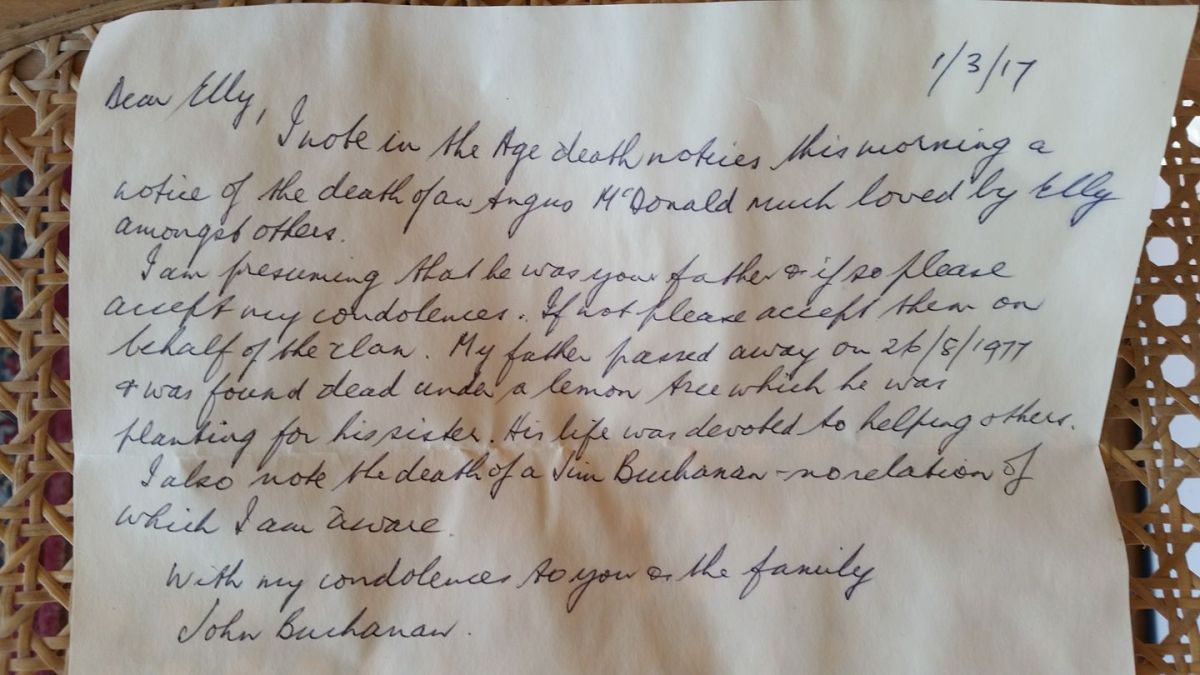 1/3/17
Dear Elly,
I note in the Age death notices this morning a
notice of the death of an Angus McDonald much loved by Elly
amongst others.
I am presuming that he was your father & if so please
accept my condolences. If not please accept them on
behalf of the clan. My father passed away on 26/8/1977
& was found dead under a lemon tree which he was
planting for his sister. His life was devoted to helping others.
I also note the death of a Jim Buchanan - no relation of
which I am aware.
With my condolences to you & the family
John Buchanan.